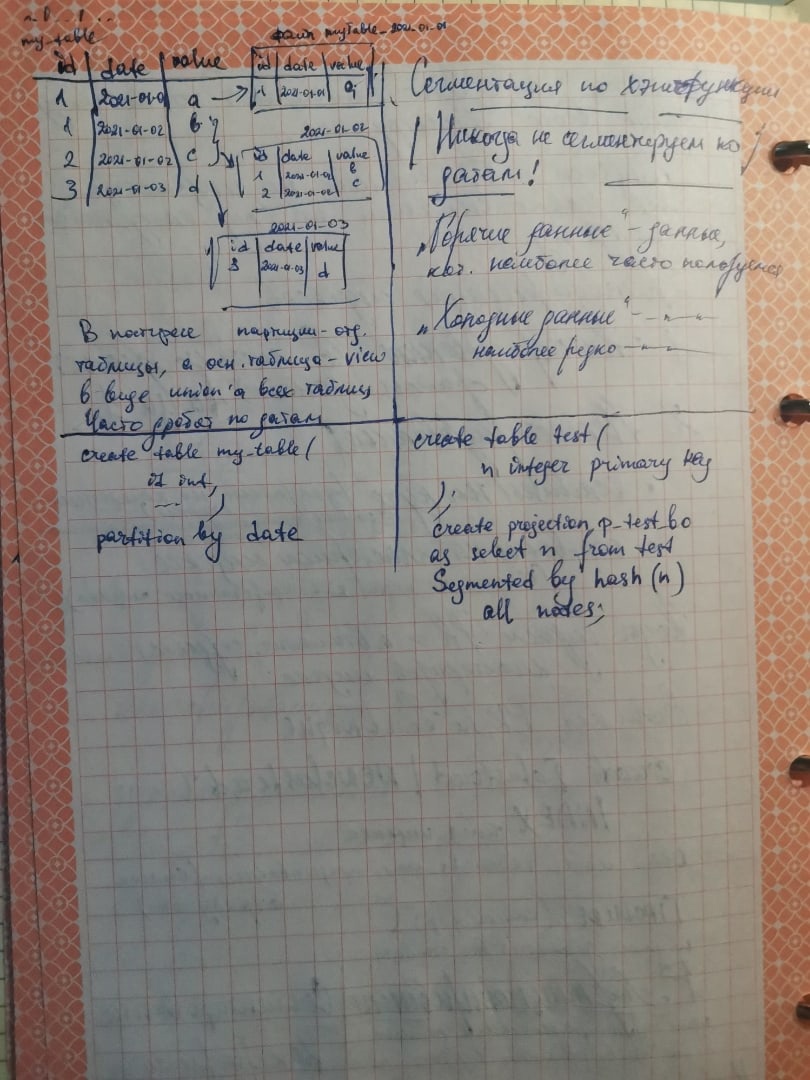 my_table
id date value
1 2021-01-01 a
1 2021-01-02 b
2 2021-01-02 c
3 2021-01-03 d
файл myTable_2021-01-01
id date value
1 2021-01-01 a
2021-01-02
id date value
1 2021-01-02 b
2 2021-01-02 c
2021-01-03
id date value
3 2021-01-03 d
В постгресе партиции - отд.
таблицы, а осн. таблица - view
в виде union'а всех таблиц
Часто дробят по датам
Сегментация по хэш функции
Никогда не сегментируем по
датам!
„Горячие данные“ - данные,
кот. наиболее часто пользуемся
„Холодные данные“ - —"—"—
наиболее редко —"—"—
create table my_table(
id int,
....
)
partition by date
create table test(
n integer primary key
);
create projection p_test_bo
as select n from test
Segmented by hash (n)
all nodes;